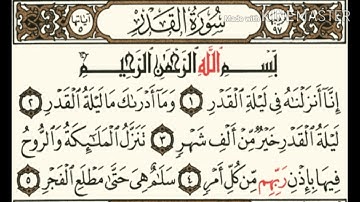 سُورَةُ القَدْرِ
بِسْمِ اللَّهِ الرَّحْمَٰنِ الرَّحِيمِ
إِنَّا أَنزَلْنَاهُ فِي لَيْلَةِ الْقَدْرِ ١ وَمَا أَدْرَاكَ مَا لَيْلَةُ الْقَدْرِ ٢
لَيْلَةُ الْقَدْرِ خَيْرٌ مِّنْ أَلْفِ شَهْرٍ ٣ تَنَزَّلُ الْمَلَائِكَةُ وَالرُّوحُ
فِيهَا بِإِذْنِ رَبِّهِم مِّن كُلِّ أَمْرٍ ٤ سَلَامٌ هِيَ حَتَّىٰ مَطْلَعِ الْفَجْرِ ٥